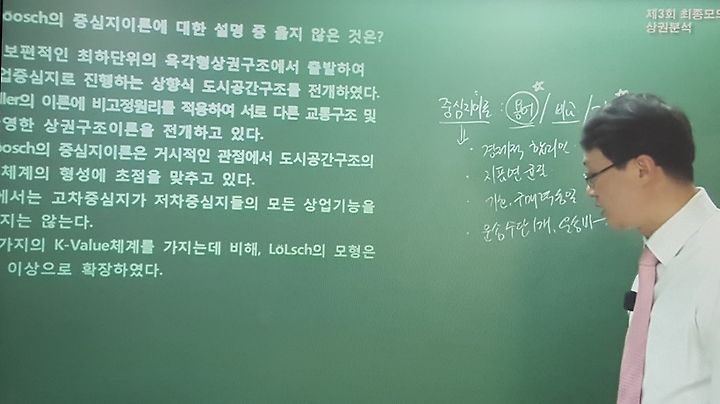 öosch의 중심지이론에 대한 설명 중 옳지 않은 것은?
보편적인 최하단위의 육각형상권구조에서 출발하여
업중심지로 진행하는 상향식 도시공간구조를 전개하였다.
ller의 이론에 비고정원리를 적용하여 서로 다른 교통구조 및
영한 상권구조이론을 전개하고 있다.
oosch의 중심지이론은 거시적인 관점에서 도시공간구조의
체계의 형성에 초점을 맞추고 있다.
에서는 고차중심지가 저차중심지들의 모든 상업기능을
지는 않는다.
가지의 K-Value체계를 가지는데 비해, LöLsch의 모형은
이상으로 확장하였다.
제3회 최종모의
상권분석
중심지이론 : 용어 / 비교 /
· 경제적 합리인
· 지표면 균질
· 구매력 동일
· 운송수단 1개,